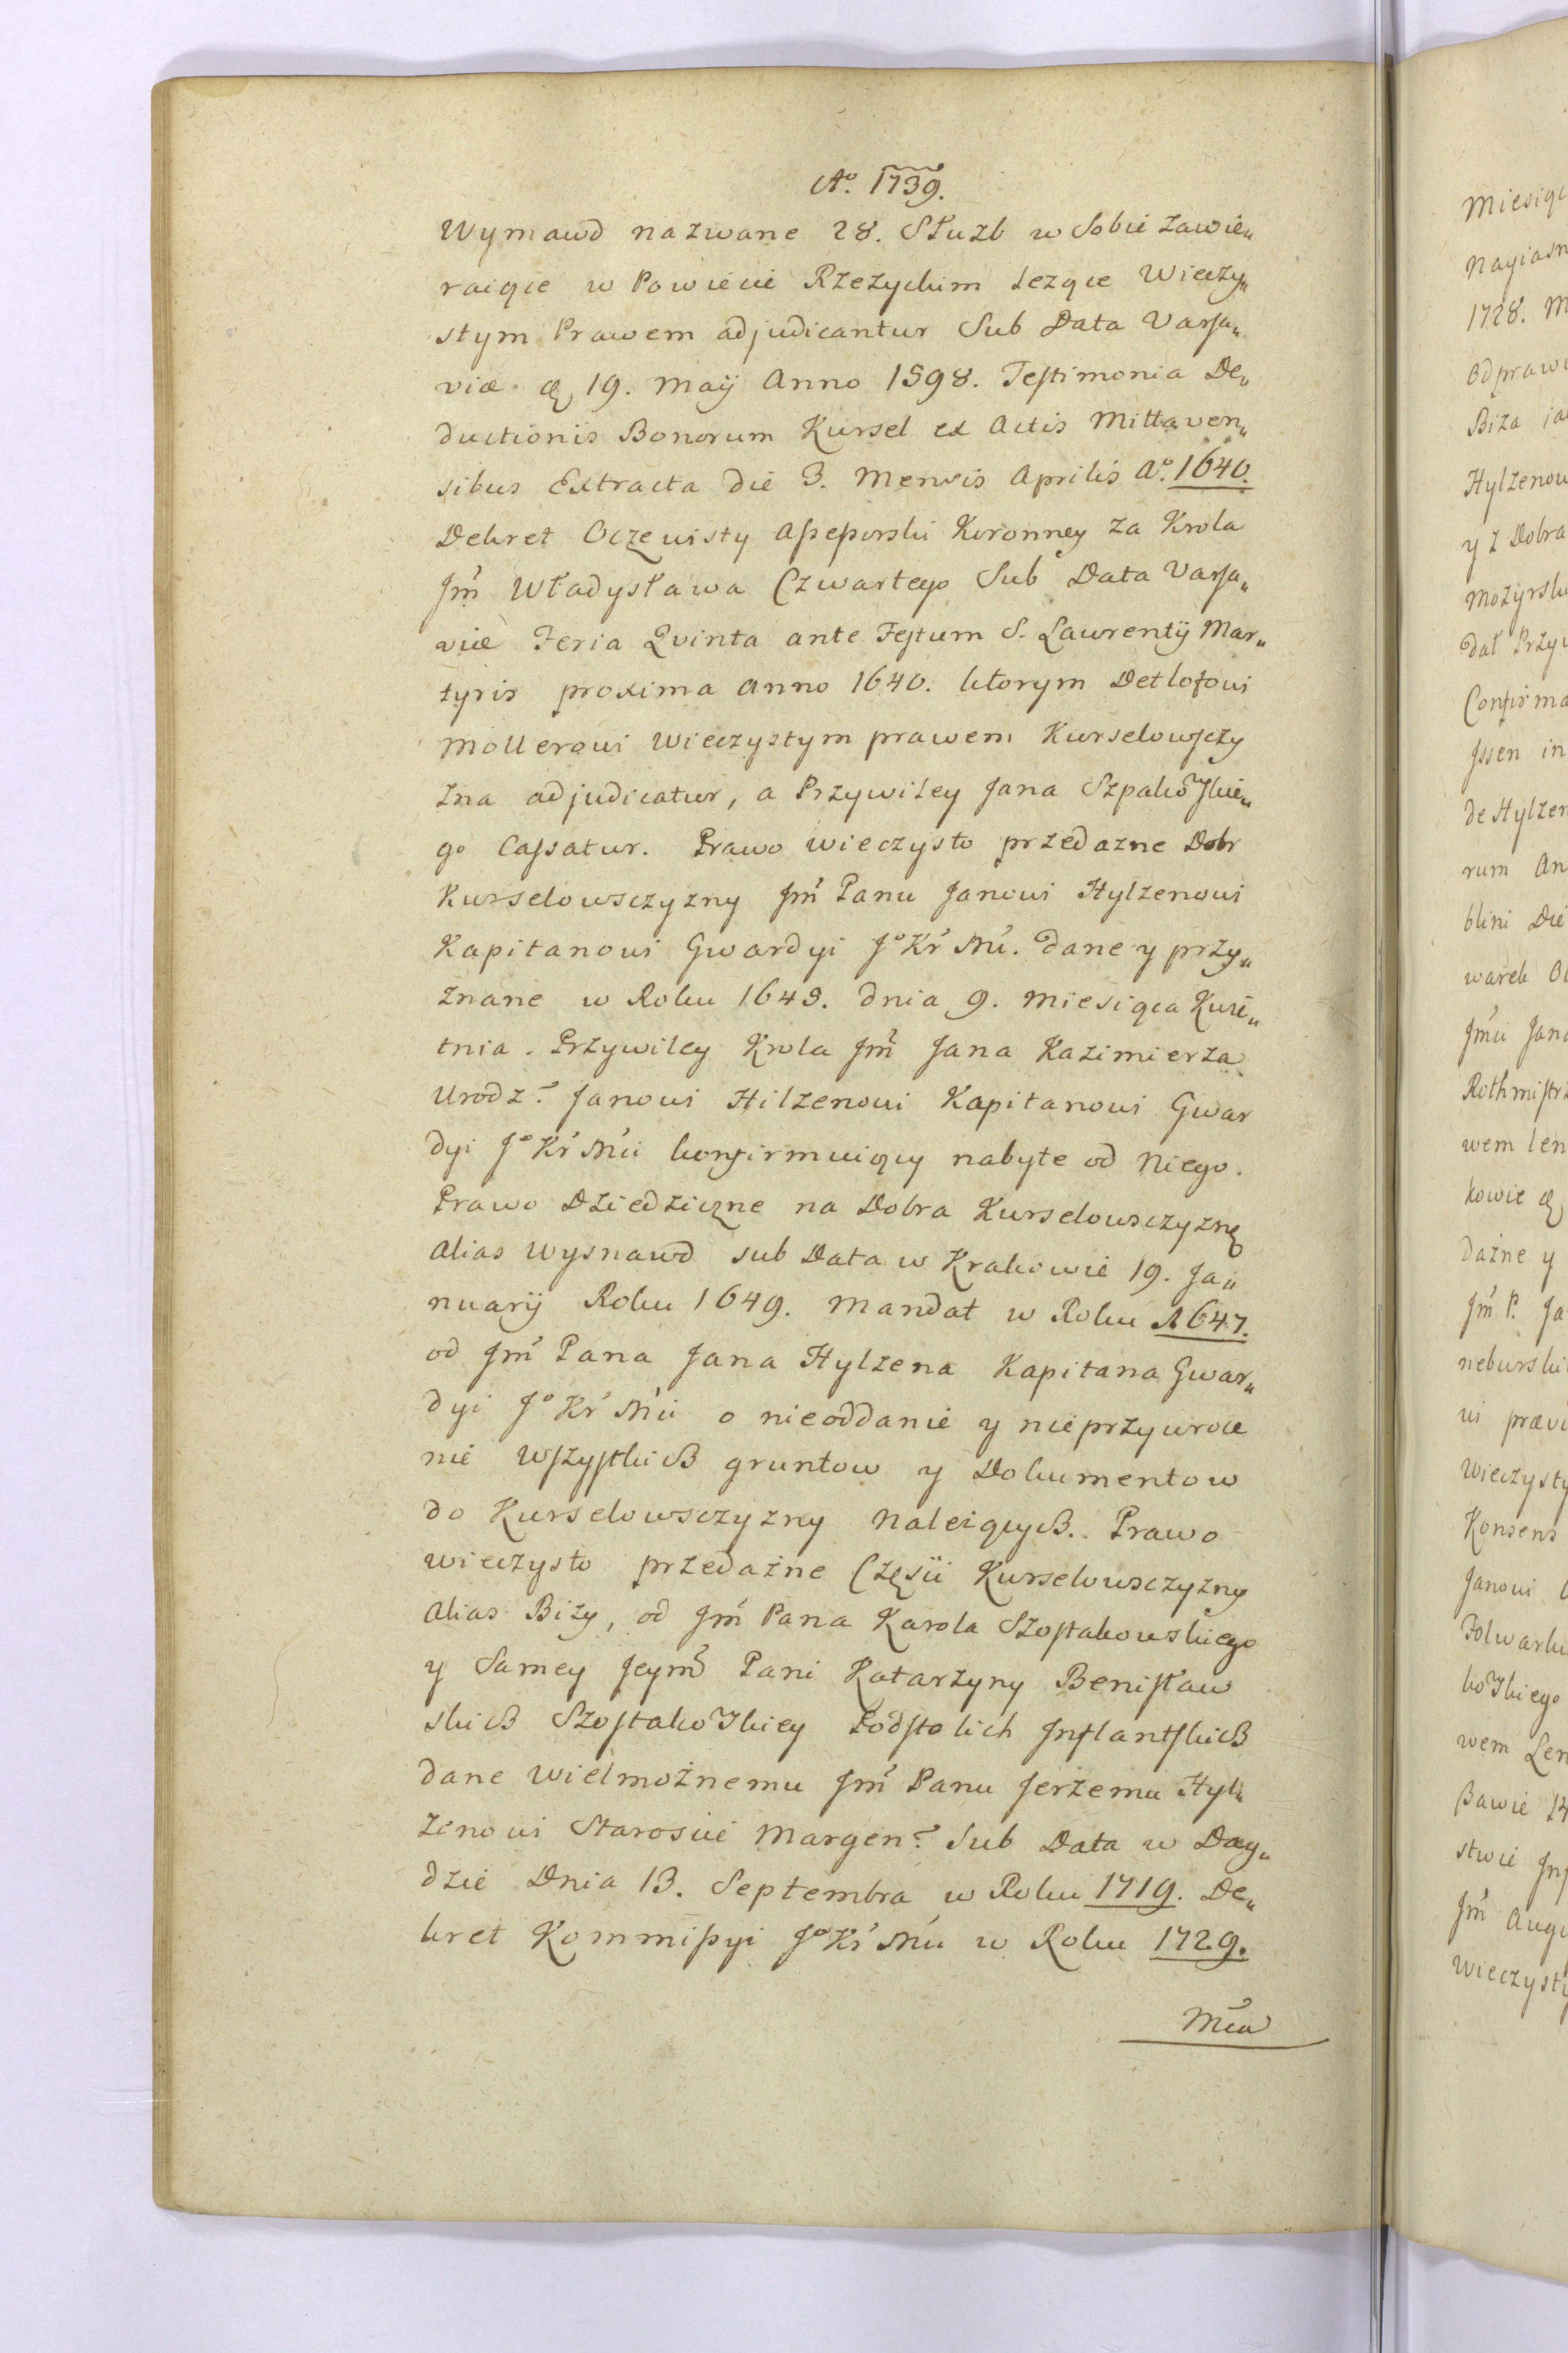 Aº. 1739.
Wymawd nazwane 28. Służb w Sobie zawie„
raiące w Powiecie Rzeżyckim leżące Wieczy„
stym Prawem adjudicantur Sub Data Varsa„
viæ 19. Maij Anno 1598. Testimonia De„
ductionis Bonorum Kursel ex Actis Mittaven„
sibus Extracta die 3. Mensis Aprilis Aº. 1640.
Dekret Oczewisty Assessorski Koronney za Krola
Jm̃ Władysława Czwartego Sub Data Varsa„
viæ Feria Qvinta ante Festum S. Laurentij Mar„
tyris proxima Anno 1640. ktorym Detlofowi
Mollerowi Wieczystym prawem Kurselowsczy
zna adjudicatur, a Przywiley Jana Szpakowskie„
go Cassatur. Prawo wieczysto przedazne Dobr
Kurselowsczyzny Jm̃ Panu Janowi Hylzenowi
Kapitanowi Gwardyi Jº Kr Mći. dane y przy„
znane w Roku 1649. dnia 9. Miesiąca Kwie„
tnia. Przywiley Krola Jm̃ Jana Kazimierza
Urodz? Janowi Hilzenowi Kapitanowi Gwar
dyi Jº Kr Mći konfirmuiący nabyte od Niego.
Prawo Dziedziczne na Dobra Kurselowsczyznę
Alias Wysnawd sub Data w Krakowie 19. Ja„
nuarij Roku 1649. Mandat w Roku 1647.
od Jm̃ Pana Jana Hylzena Kapitana Gwar„
dyi Jº Kr Mći o nieoddanie y nieprzywroce
nie wszystkich gruntow y Dokumentow
do Kurselowsczyzny Naleiących.. Prawo
wieczysto przedażne Częsci Kurselowsczyzny
Alias Bizy, od Jm̃ Pana Karola Szostakowskiego
y Samey Jeym̃ Pani Katarzyny Benisław
skich Szostakowskiey Podstolich Inflantskich
dane Wielmożnemu Jm̃ Panu Jerzemu Hyl„
zenowi Staroscie Margen? Sub Data w Dag„
dzie Dnia 13. Septembra w Roku 1719. De„
kret Kommissyi Jº Kr Mći w Roku 1729.
Mća